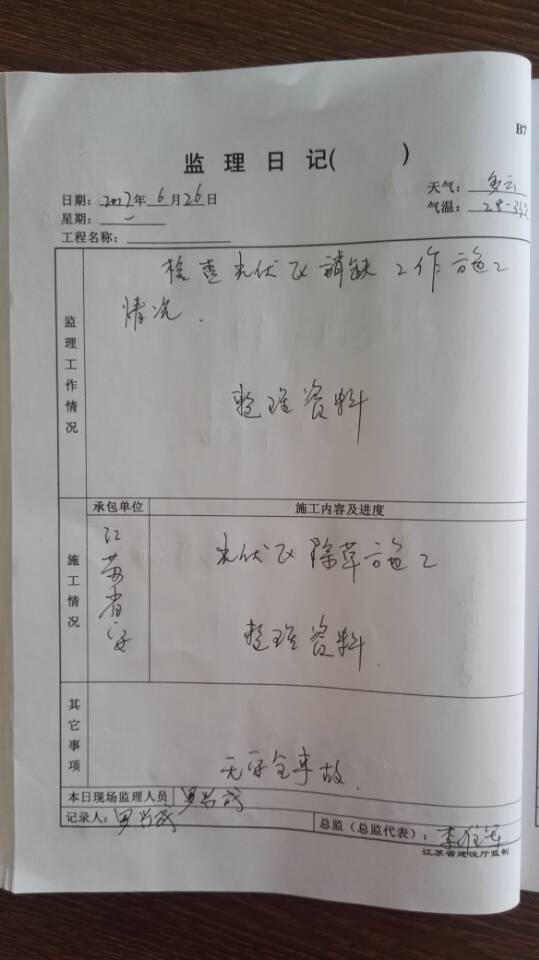 B7
监理日记( )
日期：2017年6月26日
天气：多云
星期：一
气温：28-35℃
工程名称：
监理工作情况
检查光伏区消缺工作施工
情况.
整理资料
承包单位
施工内容及进度
施工情况
江苏省安
光伏区除草施工
整理资料
其它事项
无安全事故.
本日现场监理人员
记录人：
总监（总监代表）：
江苏省建设厅监制